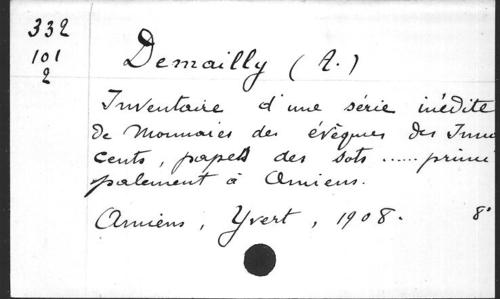 332
101
2
Demailly (A.)
Inventaire d'une série inédite
de Monnaies des évêques des Inno
cents, papes des sots ...... princi
palement à Amiens.
Amiens, Yvert, 1908. 8°